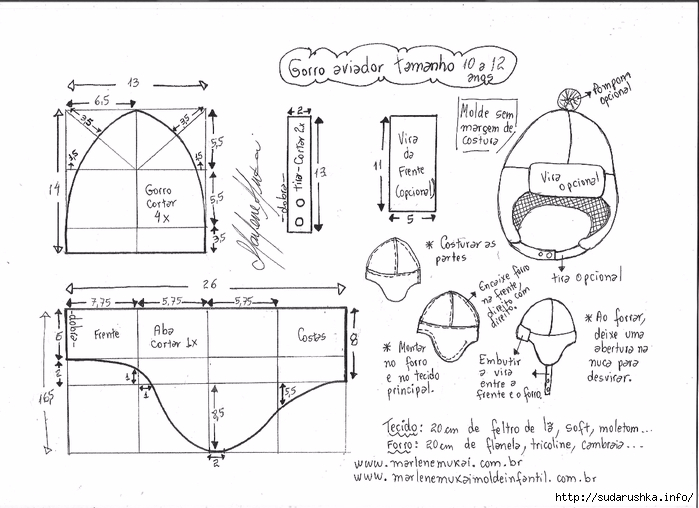 Gorro aviador tamanho 10 a 12
anos
13
6,5
3,5
3,5
1,5
1,5
5,5
5,5
3,5
14
Gorro
cortar
4x
Marlene Mukai
2
tira-cortar 2x
-dobra-
13
11
Vira
da
Frente
(opcional)
5
Molde sem
margem de
costura
Pompom
opcional
Vira
opcional
tira opcional
* Costurar as
partes
Encaixe forro
na frente,
direito com
direito.
* Montar
no forro
e no tecido
principal.
Embutir
a vira
entre a
frente e o forro
* Ao forrar,
deixe uma
abertura na
nuca para
desvirar.
26
7,75
5,75
5,75
-dobra-
Frente
Aba
cortar 1x
Costas
6
2
16,5
8
1
1
8,5
5,5
2
Tecido: 20 cm de feltro de lã, soft, moletom...
Forro: 20 cm de flanela, tricoline, cambraia...
www.marlenemukai.com.br
www.marlenemukaimoldeinfantil.com.br
http://sudarushka.info/